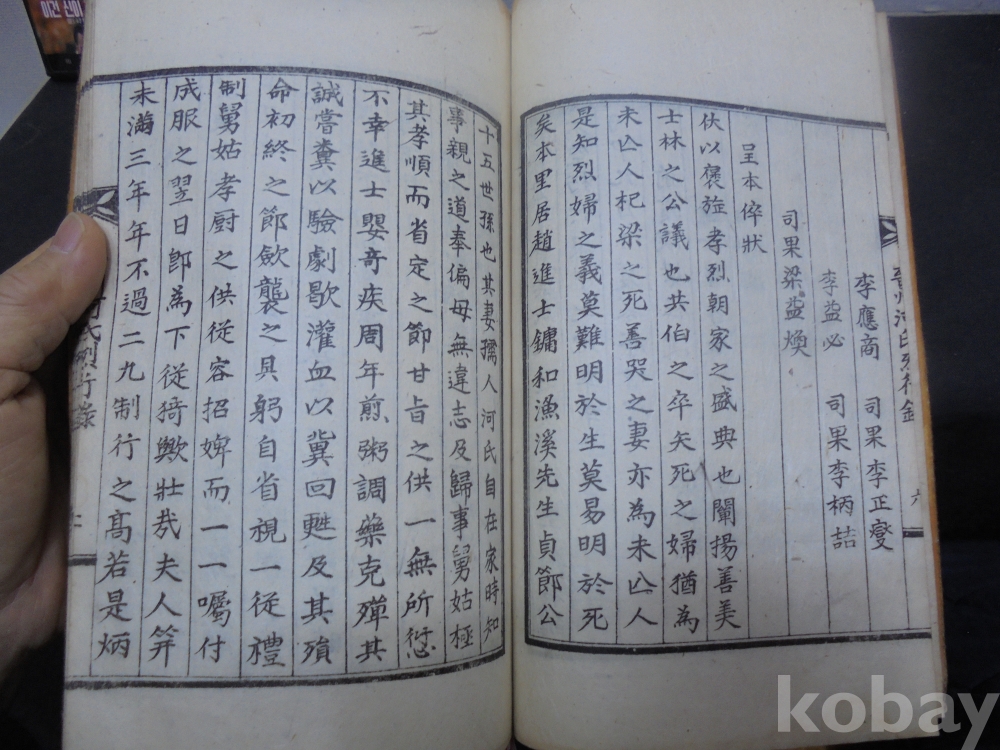 李應商 司果李正燮
李益必 司果李柄喆
司果梁益煥
呈本倅狀
伏以褒旌孝烈朝家之盛典也闡揚善美
士林之公議也共伯之卒矢死之婦猶為
未亡人杞梁之死善哭之妻亦為未亡人
是知烈婦之義莫難明於生莫易明於死
矣本里居趙進士鏞和漁溪先生貞節公
十五世孫也其妻孺人河氏自在家時知
事親之道奉偏母無違志及歸事舅姑極
其孝順而省定之節甘旨之供一無所愆
不幸進士嬰奇疾周年煎粥調藥克殫其
誠嘗糞以驗劇歇灌血以冀回甦及其殞
命初終之節斂襲之具躬自省視一從禮
制舅姑孝廚之供從容招婢而一一囑付
成服之翌日卽為下從猗歟壯哉夫人笄
未滿三年年不過二九制行之高若是炳
河氏烈行錄
kobay